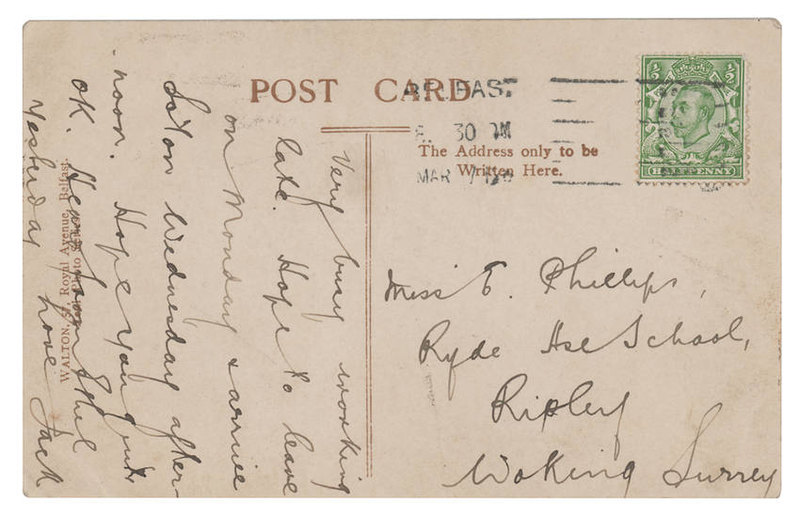 POST CARD
The Address only to be
Written Here.
30 PM
MAR
½ ½
HALFPENNY
Very busy working
late. Hope to leave
on Monday & arrive
So'ton Wednesday after-
noon. Hope you quite
OK. Heard from Ethel
yesterday
Love Jack
WALTON, Royal Avenue, Belfast.
Miss E. Phillips,
Ryde Hse School,
Ripley
Woking Surrey